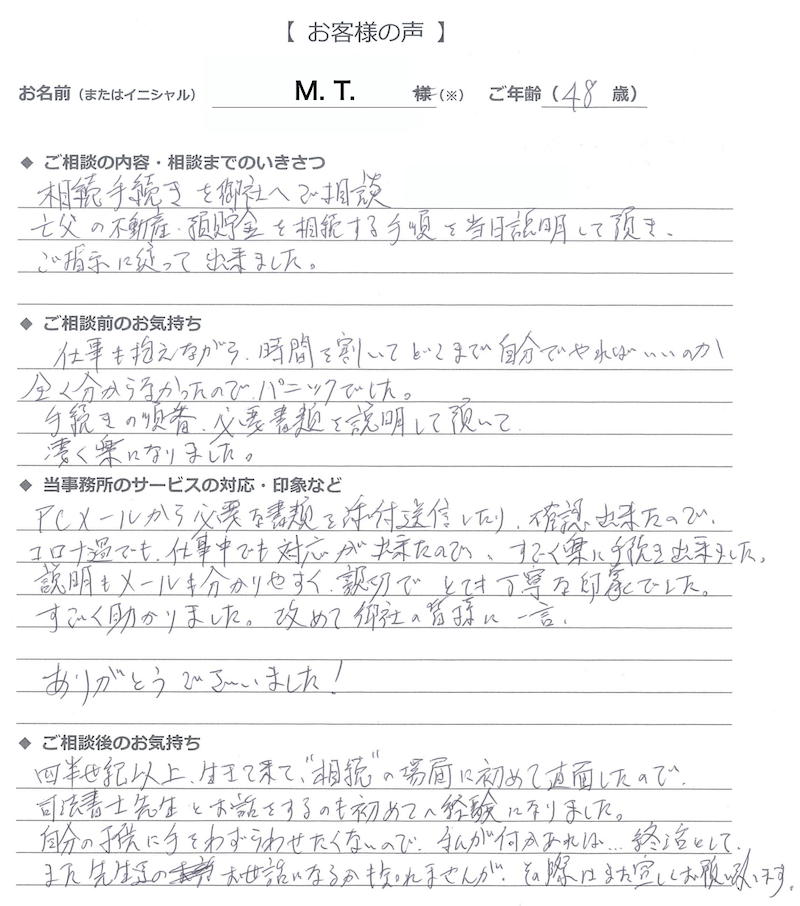 【 お客様の声 】
お名前（またはイニシャル） M. T. 様（※） ご年齢（ 48 歳）
◆ ご相談の内容・相談までのいきさつ
相続手続きを御社へご相談
亡父の不動産・預貯金を相続する手順を当日説明して頂き、
ご指示に従って出来ました。
◆ ご相談前のお気持ち
仕事も抱えながら、時間を割いてどこまで自分でやればいいのか
全く分からなかったので、パニックでした。
手続きの順番、必要書類を説明して頂いて、
凄く楽になりました。
◆ 当事務所のサービスの対応・印象など
PCメールから必要な書類を添付送信したり、確認出来たので、
コロナ過でも、仕事中でも対応が出来たので、すごく楽に手続き出来ました。
説明もメールも分かりやすく、親切でとても丁寧な印象でした。
すごく助かりました。改めて御社の皆様に一言、
ありがとうございました！
◆ ご相談後のお気持ち
四半世紀以上、生きて来て、"相続"の場面に初めて直面したので、
司法書士先生とお話をするのも初めてで経験になりました。
自分の子供に手をわずらわせたくないので、私が何かあれば…終活として、
また先生のお世話になるかも知れませんが、その際はまた宜しくお願い致します。